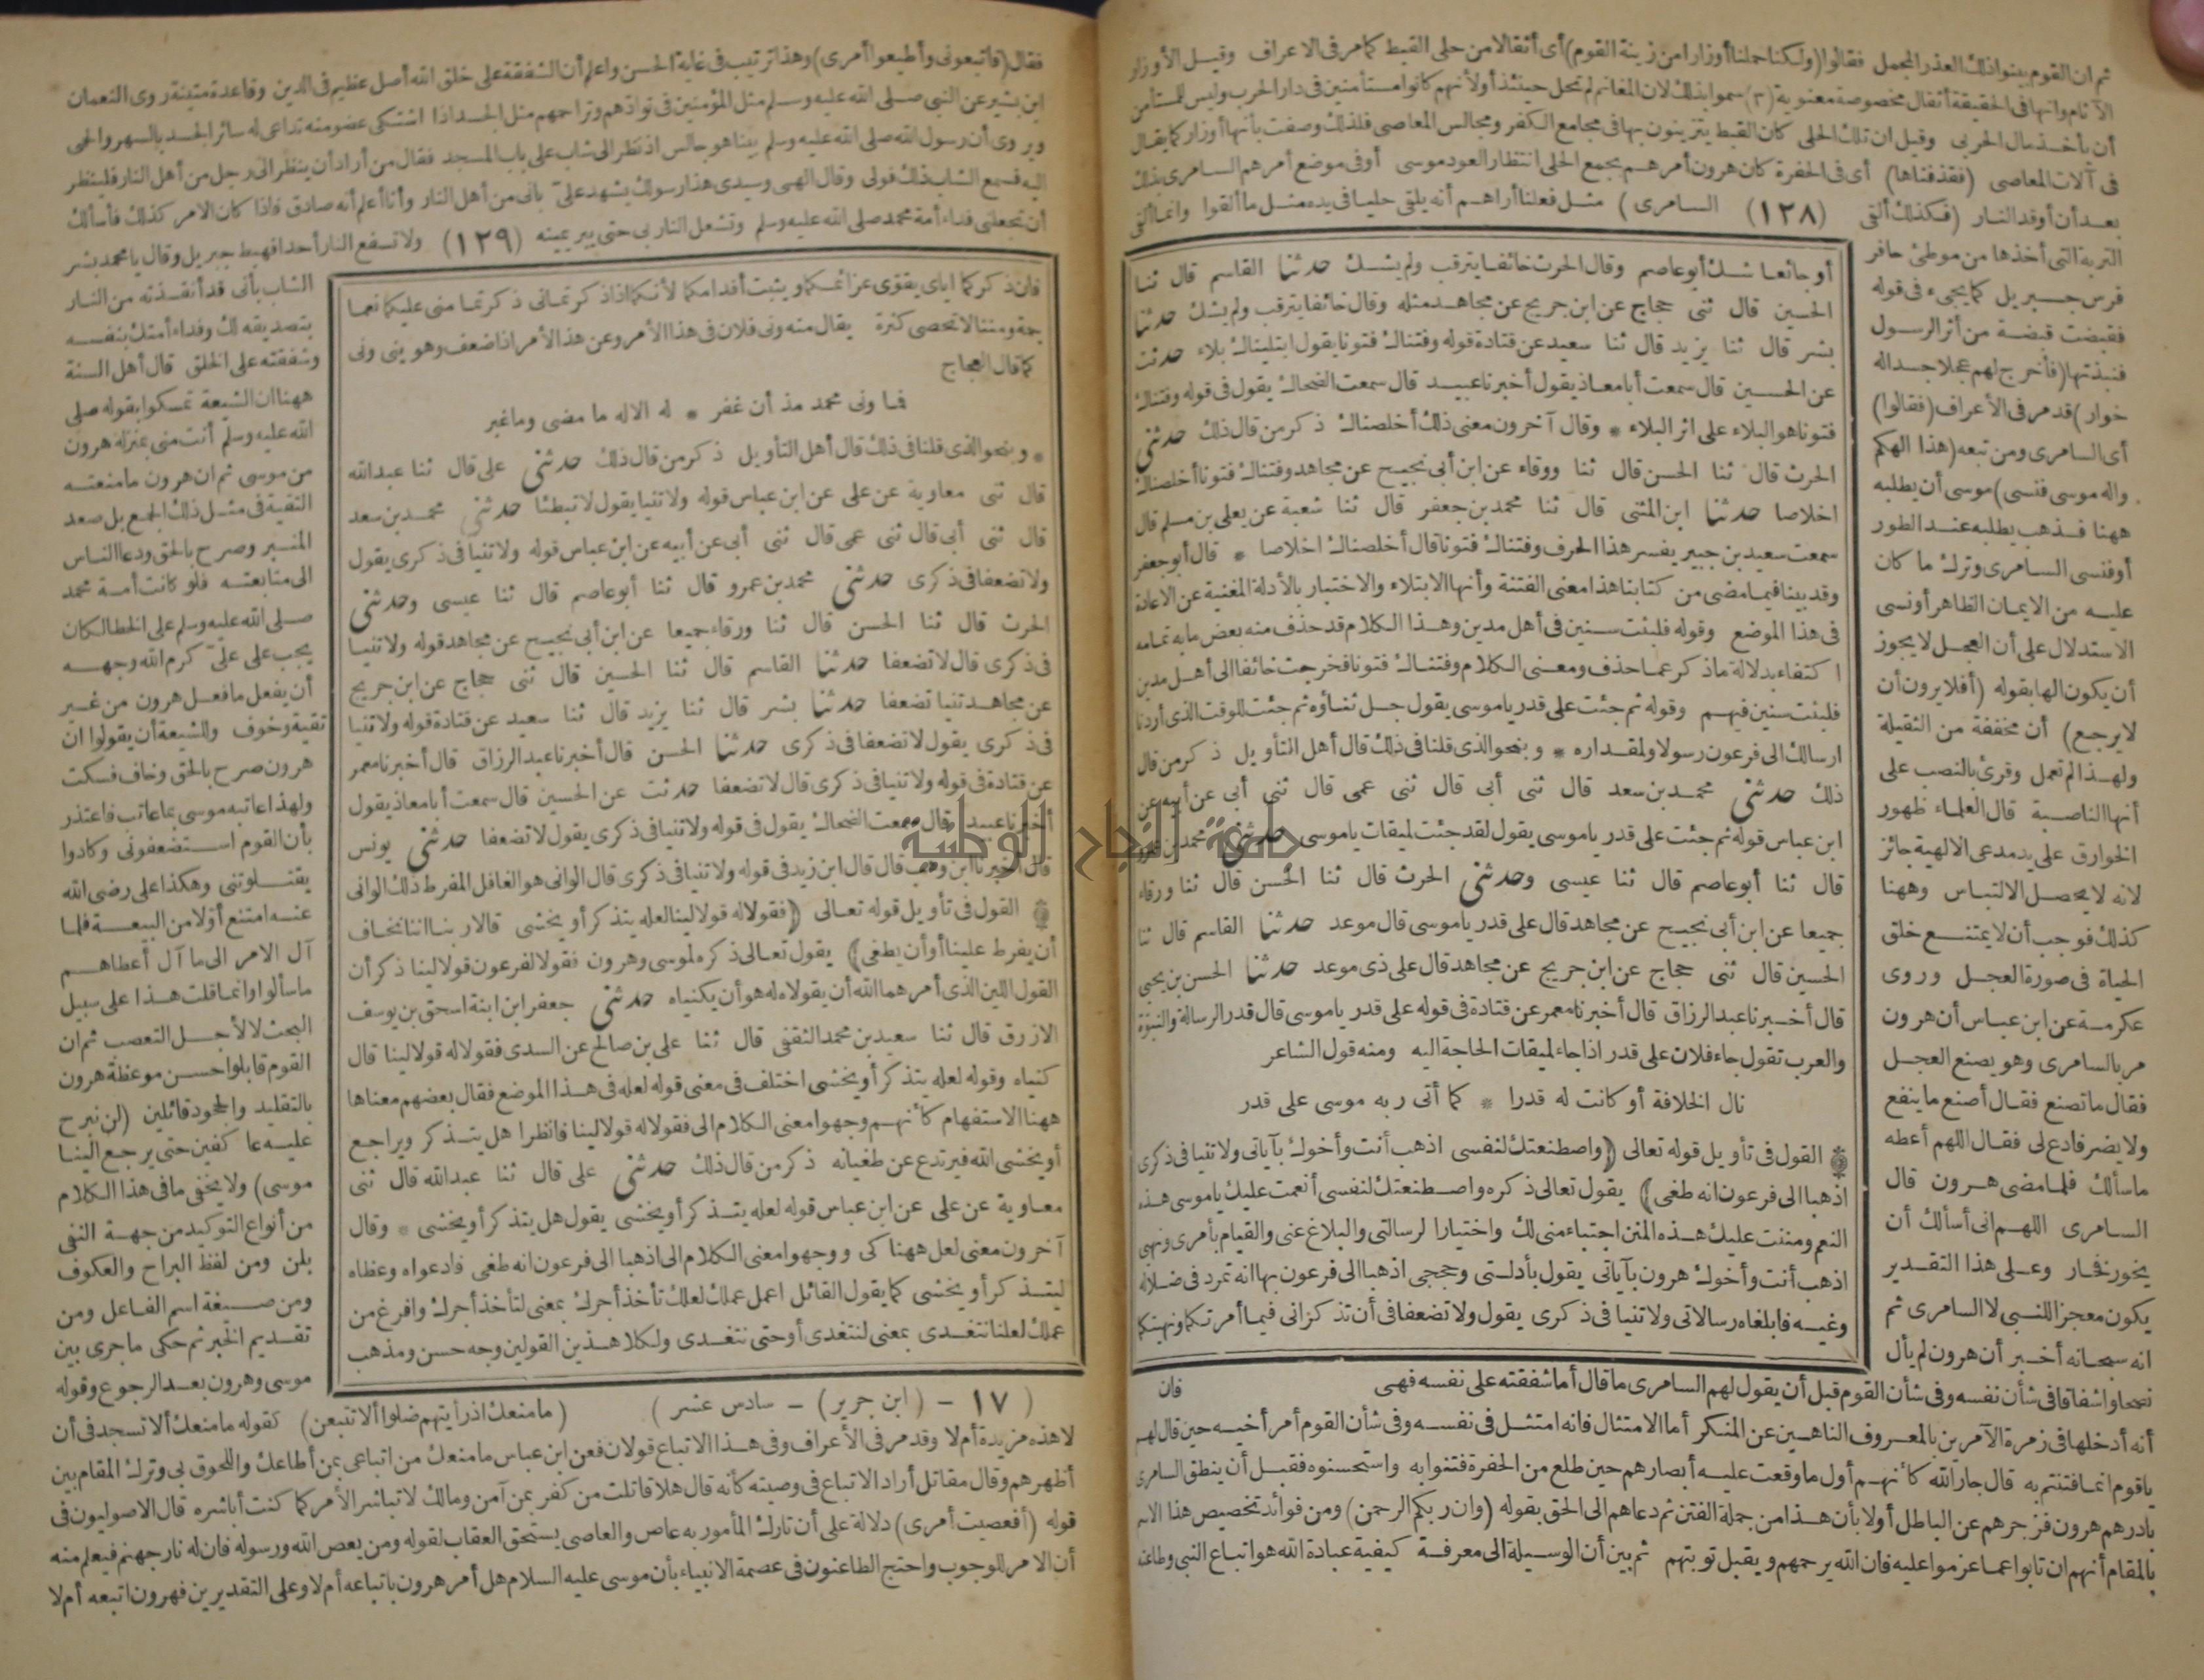 ثم ان القوم بينوا ذلك العذر المجمل فقالوا (ولكنا حملنا أوزارا من زينة القوم) أى أثقالا من حلى القبط كما مر فى الاعراف وقيل الأوزار
الآثام وانها فى الحقيقة أثقال مخصوصة معنوية (٣) سموا بذلك لان المغانم لم تحل حينئذ أولأنهم كانوا مستأمنين فى دار الحرب وليس للمستأمن
أن يأخذ مال الحربى وقيل ان تلك الحلى كان القبط يتزينون بها فى مجامع الكفر ومجالس المعاصى فلذلك وصفت بأنها أوزار كما يقال
فى آلات المعاصى (فقذفناها) أى فى الحفرة كان هرون أمرهم بجمع الحلى انتظار العود موسى أوفى موضع أمرهم السامرى بذلك
بعد أن أوقد النار (فكذلك ألقى (١٢٨) السامرى) مثل فعلنا أراهم أنه يلقى حليا فى يده مثل ما ألقوا وانما ألقى
التربة التى أخذها من موطئ حافر
فرس جبريل كما يجىء فى قوله
فقبضت قبضة من أثر الرسول
فنبذتها (فأخرج لهم عجلا جسدا له
خوار) قد مر فى الأعراف (فقالوا)
أى السامرى ومن تبعه (هذا الهكم
واله موسى فنسى) موسى أن يطلبه
ههنا فذهب يطلبه عند الطور
أو فنسى السامرى وترك ما كان
عليه من الايمان الظاهر أو نسى
الاستدلال على أن العجل لا يجوز
أن يكون الها بقوله (أفلا يرون أن
لا يرجع) أن مخففة من الثقيلة
ولهذا لم تعمل وقرئ بالنصب على
أنها الناصبة قال العلماء ظهور
الخوارق على يد مدعى الالهية جائز
لانه لا يحصل الالتباس وههنا
كذلك فوجب أن لا يمتنع خلق
الحياة فى صورة العجل وروى
عكرمة عن ابن عباس أن هرون
مر بالسامرى وهو يصنع العجل
فقال ما تصنع فقال أصنع ما ينفع
ولا يضر فادع لى فقال اللهم أعطه
ما سألك فلما مضى هرون قال
السامرى اللهم انى أسألك أن
يخور فخار وعلى هذا التقدير
يكون معجزا للنبى لا السامرى ثم
انه سبحانه أخبر أن هرون لم يأل
أو جائعا شك أبو عاصم وقال الحرث خائفا يترقب ولم يشك حدثنا القاسم قال ثنا
الحسين قال ثنى حجاج عن ابن جريج عن مجاهد مثله وقال خائفا يترقب ولم يشك حدثنا
بشر قال ثنا يزيد قال ثنا سعيد عن قتادة قوله وفتناك فتونا يقول ابتليناك بلاء حدثت
عن الحسين قال سمعت أبا معاذ يقول أخبرنا عبيد قال سمعت الضحاك يقول فى قوله وفتناك
فتونا هو البلاء على اثر البلاء * وقال آخرون معنى ذلك أخلصناك ذكر من قال ذلك حدثنى
الحرث قال ثنا الحسن قال ثنا ورقاء عن ابن أبى نجيح عن مجاهد وفتناك فتونا أخلصناك
اخلاصا حدثنا ابن المثنى قال ثنا محمد بن جعفر قال ثنا شعبة عن يعلى بن مسلم قال
سمعت سعيد بن جبير يفسر هذا الحرف وفتناك فتونا قال أخلصناك اخلاصا * قال أبو جعفر
وقد بينا فيما مضى من كتابنا هذا معنى الفتنة وأنها الابتلاء والاختبار بالأدلة المغنية عن الاعادة
فى هذا الموضع وقوله فلبثت سنين فى أهل مدين وهذا الكلام قد حذف منه بعض ما به تمامه
اكتفاء بدلالة ما ذكر عما حذف ومعنى الكلام وفتناك فتونا فخرجت خائفا الى أهل مدين
فلبثت سنين فيهم وقوله ثم جئت على قدر ياموسى يقول جل ثناؤه ثم جئت للوقت الذى أردنا
ارسالك الى فرعون رسولا ولمقداره * وبنحو الذى قلنا فى ذلك قال أهل التأويل ذكر من قال
ذلك حدثنى محمد بن سعد قال ثنى أبى قال ثنى عمى قال ثنى أبى عن أبيه عن
ابن عباس قوله ثم جئت على قدر ياموسى يقول لقد جئت لميقات ياموسى حدثنى محمد بن عمرو
قال ثنا أبو عاصم قال ثنا عيسى وحدثنى الحرث قال ثنا الحسن قال ثنا ورقاء
جميعا عن ابن أبى نجيح عن مجاهد قال على قدر ياموسى قال موعد حدثنا القاسم قال ثنا
الحسين قال ثنى حجاج عن ابن جريج عن مجاهد قال على ذى موعد حدثنا الحسن بن يحيى
قال أخبرنا عبد الرزاق قال أخبرنا معمر عن قتادة فى قوله على قدر ياموسى قال قدر الرسالة والنبوة
والعرب تقول جاء فلان على قدر اذا جاء لميقات الحاجة اليه ومنه قول الشاعر
نال الخلافة أو كانت له قدرا * كما أتى ربه موسى على قدر
القول فى تأويل قوله تعالى (واصطنعتك لنفسى اذهب أنت وأخوك بآياتى ولا تنيا فى ذكرى
اذهبا الى فرعون انه طغى) يقول تعالى ذكره واصطنعتك لنفسى أنعمت عليك ياموسى هذه
النعم ومننت عليك هذه المنن اجتباء منى لك واختيارا لرسالتى والبلاغ عنى والقيام بأمرى ونهيى
اذهب أنت وأخوك هرون بآياتى يقول بأدلتى وحججى اذهبا الى فرعون بها انه تمرد فى ضلاله
وغيه فابلغاه رسالاتى ولا تنيا فى ذكرى يقول ولا تضعفا فى أن تذكرانى فيما أمرتكما ونهيتكما
نصحا واشفاقا فى شأن نفسه وفى شأن القوم قبل أن يقول لهم السامرى ما قال أما شفقته على نفسه فهى فان
أنه أدخلها فى زمرة الآمرين بالمعروف الناهين عن المنكر أما الامتثال فانه امتثل فى نفسه وفى شأن القوم أمر أخيه حين قال لهم
ياقوم انما فتنتم به قال جار الله كأنهم أول ما وقعت عليه أبصارهم حين طلع من الحفرة فتنوا به واستحسنوه فقبل أن ينطق السامرى
بادرهم هرون فزجرهم عن الباطل أولا بأن هذا من جملة الفتن ثم دعاهم الى الحق بقوله (وان ربكم الرحمن) ومن فوائد تخصيص هذا الاسم
بالمقام أنهم ان تابوا عما عزموا عليه فان الله يرحمهم ويقبل توبتهم ثم بين أن الوسيلة الى معرفة كيفية عبادة الله هو اتباع النبى وطاعته
فقال (فاتبعونى وأطيعوا أمرى) وهذا ترتيب فى غاية الحسن واعلم أن الشفقة على خلق الله أصل عظيم فى الدين وقاعدة متينة روى النعمان
ابن بشير عن النبى صلى الله عليه وسلم مثل المؤمنين فى توادهم وتراحمهم مثل الجسد اذا اشتكى عضو منه تداعى له سائر الجسد بالسهر والحمى
وروى أن رسول الله صلى الله عليه وسلم بينا هو جالس اذ نظر الى شاب على باب المسجد فقال من أراد أن ينظر الى رجل من أهل النار فلينظر
اليه فسمع الشاب ذلك فولى وقال الهى وسيدى هذا رسولك يشهد علىّ بانى من أهل النار وأنا أعلم أنه صادق فاذا كان الامر كذلك فأسألك
أن تجعلنى فداء أمة محمد صلى الله عليه وسلم وتشعل النار بى حتى يبر يمينه (١٢٩) ولا تسفع النار أحدا فهبط جبريل وقال يا محمد بشر
الشاب بأنى قد أنقذته من النار
بتصديقه لك وفداء أمتك بنفسه
وشفقته على الخلق قال أهل السنة
ههنا ان الشيعة تمسكوا بقوله صلى
الله عليه وسلم أنت منى بمنزلة هرون
من موسى ثم ان هرون ما منعته
التقية فى مثل ذلك الجمع بل صعد
المنبر وصرح بالحق ودعا الناس
الى متابعته فلو كانت أمة محمد
صلى الله عليه وسلم على الخطا لكان
يجب على علىّ كرم الله وجهه
أن يفعل ما فعل هرون من غير
تقية وخوف وللشيعة أن يقولوا ان
هرون صرح بالحق وخاف فسكت
ولهذا عاتبه موسى بما عاتب فاعتذر
بأن القوم استضعفونى وكادوا
يقتلوننى وهكذا على رضى الله
عنه امتنع أولا من البيعة فلما
آل الامر الى ما آل أعطاهم
ما سألوا وانما قلت هذا على سبيل
البحث لا لأجل التعصب ثم ان
القوم قابلوا حسن موعظة هرون
بالتقليد والجحود قائلين (لن نبرح
عليه عاكفين حتى يرجع الينا
موسى) ولا يخفى ما فى هذا الكلام
من أنواع التوكيد من جهة النفى
بلن ومن لفظ البراح والعكوف
ومن صيغة اسم الفاعل ومن
تقديم الخبر ثم حكى ما جرى بين
موسى وهرون بعد الرجوع وقوله
فان ذكركما اياى يقوى عزائمكما ويثبت أقدامكما لأنكما اذا ذكرتمانى ذكرتما منى عليكما نعما
جمة ومننا لا تحصى كثرة يقال منه ونى فلان فى هذا الأمر وعن هذا الأمر اذا ضعف وهو ينى ونى
كما قال العجاج
فما ونى محمد مذ أن غفر * له الاله ما مضى وما غبر
* وبنحو الذى قلنا فى ذلك قال أهل التأويل ذكر من قال ذلك حدثنى على قال ثنا عبدالله
قال ثنى معاوية عن على عن ابن عباس قوله ولا تنيا يقول لا تبطئا حدثنى محمد بن سعد
قال ثنى أبى قال ثنى عمى قال ثنى أبى عن أبيه عن ابن عباس قوله ولا تنيا فى ذكرى يقول
ولا تضعفا فى ذكرى حدثنى محمد بن عمرو قال ثنا أبو عاصم قال ثنا عيسى وحدثنى
الحرث قال ثنا الحسن قال ثنا ورقاء جميعا عن ابن أبى نجيح عن مجاهد قوله ولا تنيا
فى ذكرى قال لا تضعفا حدثنا القاسم قال ثنا الحسين قال ثنى حجاج عن ابن جريج
عن مجاهد تنيا تضعفا حدثنا بشر قال ثنا يزيد قال ثنا سعيد عن قتادة قوله ولا تنيا
فى ذكرى يقول لا تضعفا فى ذكرى حدثنا الحسن قال أخبرنا عبد الرزاق قال أخبرنا معمر
عن قتادة فى قوله ولا تنيا فى ذكرى قال لا تضعفا حدثت عن الحسين قال سمعت أبا معاذ يقول
أخبرنا عبيد قال سمعت الضحاك يقول فى قوله ولا تنيا فى ذكرى يقول لا تضعفا حدثنى يونس
قال أخبرنا ابن وهب قال قال ابن زيد فى قوله ولا تنيا فى ذكرى قال الوانى هو الغافل المفرط ذلك الوانى
القول فى تأويل قوله تعالى (فقولا له قولا لينا لعله يتذكر أو يخشى قالا ربنا اننا نخاف
أن يفرط علينا أو أن يطغى) يقول تعالى ذكره لموسى وهرون فقولا لفرعون قولا لينا ذكر أن
القول اللين الذى أمرهما الله أن يقولاه له هو أن يكنياه حدثنى جعفر ابن ابنة اسحق بن يوسف
الازرق قال ثنا سعيد بن محمد الثقفى قال ثنا على بن صالح عن السدى فقولا له قولا لينا قال
كنياه وقوله لعله يتذكر أو يخشى اختلف فى معنى قوله لعله فى هذا الموضع فقال بعضهم معناها
ههنا الاستفهام كأنهم وجهوا معنى الكلام الى فقولا له قولا لينا فانظرا هل يتذكر ويراجع
أو يخشى الله فيرتدع عن طغيانه ذكر من قال ذلك حدثنى على قال ثنا عبدالله قال ثنى
معاوية عن على عن ابن عباس قوله لعله يتذكر أو يخشى يقول هل يتذكر أو يخشى * وقال
آخرون معنى لعل ههنا كى ووجهوا معنى الكلام الى اذهبا الى فرعون انه طغى فادعواه وعظاه
ليتذكر أو يخشى كما يقول القائل اعمل عملك لعلك تأخذ أجرك بمعنى لتأخذ أجرك وافرغ من
عملك لعلنا نتغدى بمعنى لنتغدى أو حتى نتغدى ولكلا هذين القولين وجه حسن ومذهب
(١٧ - (ابن جرير) - سادس عشر)
(ما منعك اذ رأيتهم ضلوا ألا تتبعن) كقوله ما منعك ألا تسجد فى أن
لا هذه مزيدة أم لا وقد مر فى الأعراف وفى هذا الاتباع قولان فعن ابن عباس ما منعك من اتباعى بمن أطاعك واللحوق بى وترك المقام بين
أظهرهم وقال مقاتل أراد الاتباع فى وصيته كأنه قال هلا قاتلت من كفر بمن آمن ومالك لا تباشر الأمر كما كنت أباشره قال الاصوليون فى
قوله (أفعصيت أمرى) دلالة على أن تارك المأمور به عاص والعاصى يستحق العقاب لقوله ومن يعص الله ورسوله فان له نار جهنم فيعلم منه
أن الامر للوجوب واحتج الطاعنون فى عصمة الانبياء بأن موسى عليه السلام هل أمر هرون باتباعه أم لا وعلى التقديرين فهرون اتبعه أم لا
جامعة النجاح الوطنية